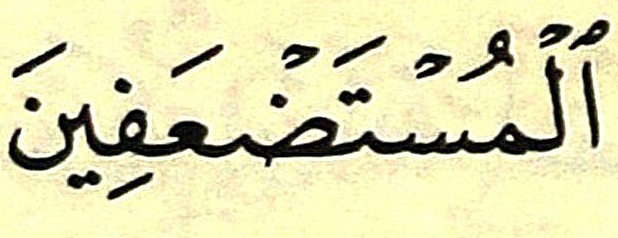 ٱلْمُسْتَضْعَفِينَ